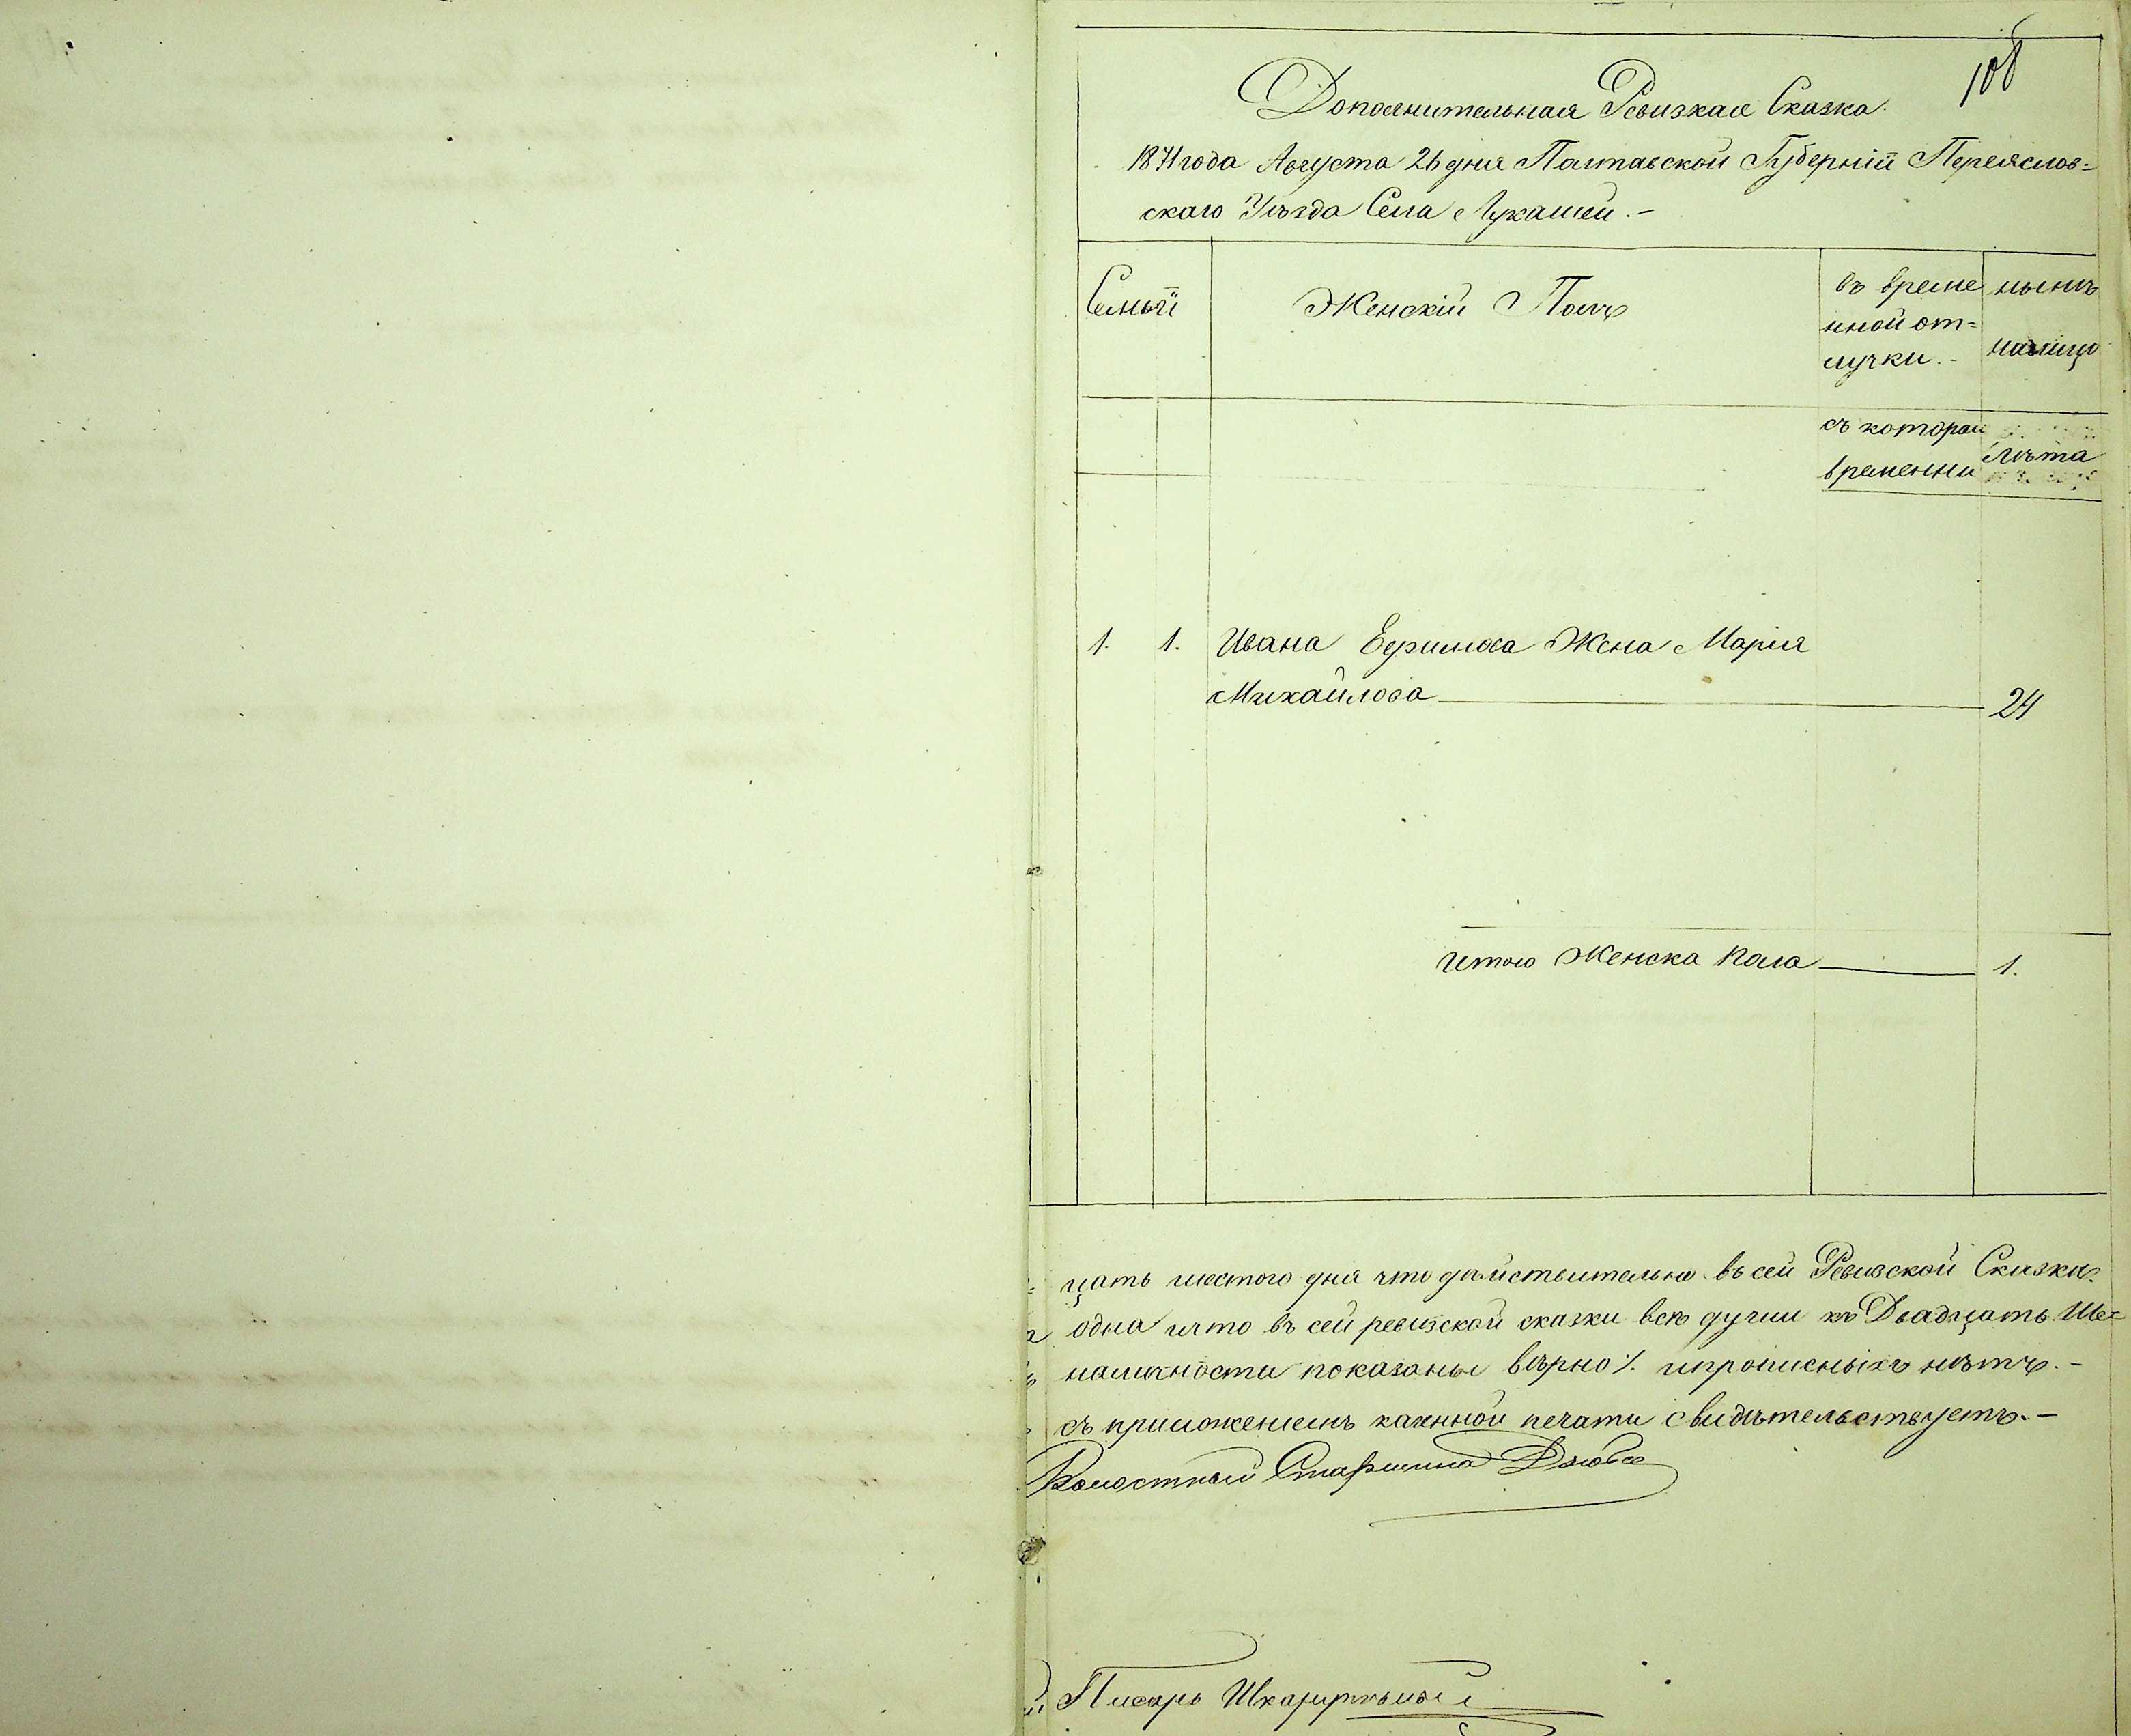 108
Дополнительная Ревизкая Сказка.
1871 года Августа 26 дня Полтавской Губерніи Переяслов=
скаго Уѣзда Села Лукашей.-
Семьи
Женскій Полъ
въ време
нной от=
лучки.-
нынѣ
налицо
съ которой
временни
Лѣта
1. 1. Ивана Ефимова Жена Марія
Михайлова 24
Итого Женска пола 1.
цать шестого дня что дѣйствительно въ сей Ревизской Сказки
одна что въ сей ревизской сказки всѣ души къ Двадцать Ше=
наличности показаны вѣрно ипрописныхъ нѣтъ.-
съ приложеніемъ казенной печати свидѣтельствуетъ.-
Волостный Старшина Дзюба
Писарь